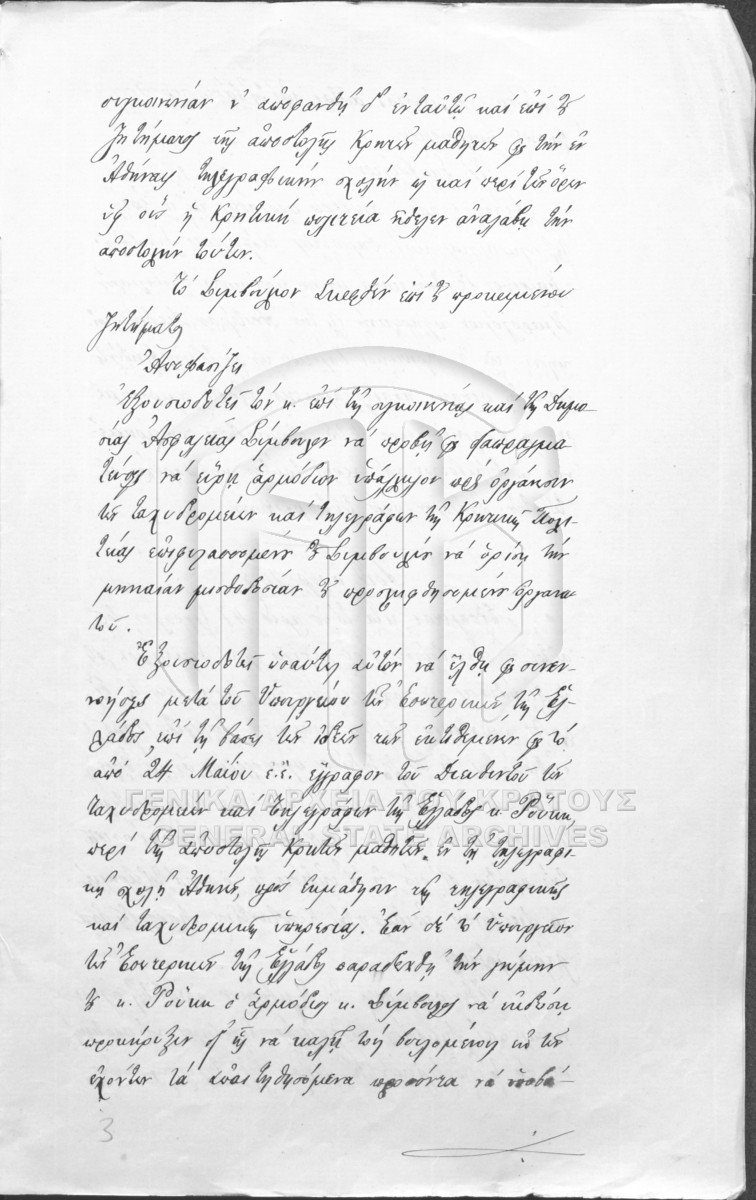 συγκοινωνίαν ν' ἀποφανθῇ δ' ἐν ταὐτῷ καὶ ἐπὶ τοῦ
ζητήματος τῆς ἀποστολῆς Κρητῶν μαθητῶν εἰς τὴν ἐν
Ἀθήναις τηλεγραφικὴν σχολὴν ὡς καὶ περὶ τῶν ὅρων
ὑφ' οὓς ἡ Κρητικὴ πολιτεία ἤθελεν ἀναλάβει τὴν
ἀποστολὴν τούτων.
Τὸ Συμβούλιον σκεφθὲν ἐπὶ τοῦ προκειμένου
ζητήματος
Ἀποφασίζει
Ἐξουσιοδοτεῖ τὸν κ. ἐπὶ τῆς συγκοινωνίας καὶ τῆς Δημο-
σίας Ἀσφαλείας Σύμβουλον νὰ προβῇ εἰς διαπραγμα
τεύσεις νὰ εὕρῃ ἁρμόδιον ὑπάλληλον πρὸς ὀργάνωσιν
τῶν ταχυδρομείων καὶ τηλεγράφων τῆς Κρητικῆς Πολι-
τείας ἐπιφυλασσομένου τοῦ Συμβουλίου νὰ ὁρίσῃ τὴν
μηνιαίαν μισθοδοσίαν τοῦ προσληφθησομένου ὀργανω
τοῦ.
Ἐξουσιοδοτεῖ ὡσαύτως αὐτὸν νὰ ἔλθῃ εἰς συνεν-
νοήσεις μετὰ τοῦ Ὑπουργείου τῶν Ἐσωτερικῶν τῆς Ἑλ-
λάδος ἐπὶ τῇ βάσει τῶν ἰδεῶν τῶν ἐκτιθεμένων εἰς τὸ
ἀπὸ 24 Μαΐου ἐ.ἔ. ἔγγραφον τοῦ Διευθυντοῦ τῶν
ταχυδρομείων καὶ τηλεγράφων τῆς Ἑλλάδος κ. Ρούκη,
περὶ τῆς ἀποστολῆς Κρητῶν μαθητῶν ἐν τῇ τηλεγραφι-
κῇ σχολῇ Ἀθηνῶν, πρὸς ἐκμάθησιν τῆς τηλεγραφικῆς
καὶ ταχυδρομικῆς ὑπηρεσίας. Ἐὰν δὲ τὸ Ὑπουργεῖον
τῶν Ἐσωτερικῶν τῆς Ἑλλάδος παραδεχθῇ τὴν γνώμην
τοῦ κ. Ρούκη ὁ ἁρμόδιος κ. Σύμβουλος νὰ ἐκδώσῃ
προκήρυξιν δι' ἧς νὰ καλῇ τοὺς βουλομένους ἐκ τῶν
ἐχόντων τὰ ἀπαιτηθησόμενα προσόντα νὰ ὑποβά-
3
ΓΕΝΙΚΑ ΑΡΧΕΙΑ ΤΟΥ ΚΡΑΤΟΥΣ
GENERAL STATE ARCHIVES